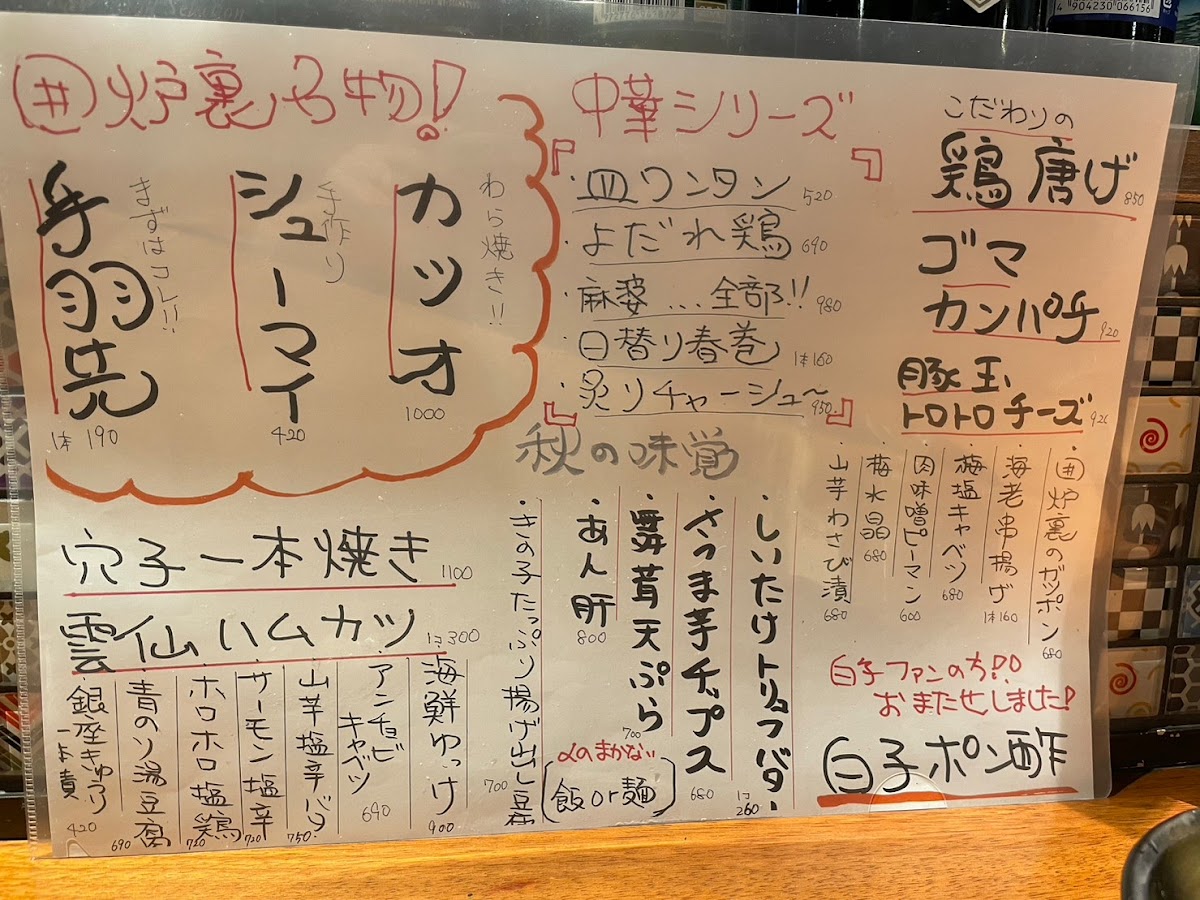 4 904230 066156
㊓炉裏名物!
わら焼き!!
カツオ
1000
手作り
シューマイ
420
まずはコレ!!
手羽先
1本 190
中華シリーズ
・皿ワンタン 520
・よだれ鶏 690
・麻婆…全部!! 980
・日替り春巻 1本160
・炙りチャーシュ〜 950
こだわりの
鶏唐げ 850
ゴマ
カンパ呼 920
豚玉
トロトロチーズ
・井炉裏のガッポン 680
・海老串揚げ 1本160
・梅塩キャベツ 680
・肉味噌ピーマン 600
・梅水晶 680
・山芋わさび漬 680
秋の味覚
・しいたけトリュフバター 1コ260
・さつま芋チップス 680
・舞茸天ぷら 700
・あん肝 800
・きの子たっぷり揚げ出し豆腐 700
〆のまかない
飯or麺
白子ファンの方!!
おまたせしました!
白子ポン酢
穴子一本焼き 1100
雲仙ハムカツ 1コ300
・海鮮ゆっけ 900
・アンチョビキャベツ 690
・山芋塩辛バタ 750
・サーモン塩辛 720
・ホロホロ塩鶏 720
・青のり湯豆腐 690
・銀座きゅうり一本漬 420